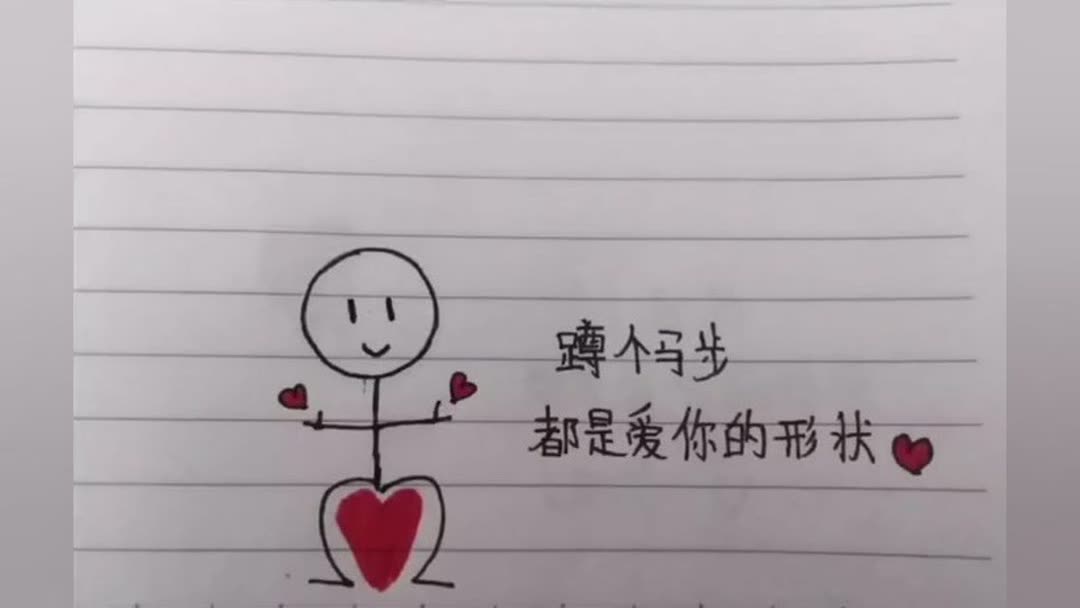 蹲个马步
都是爱你的形状